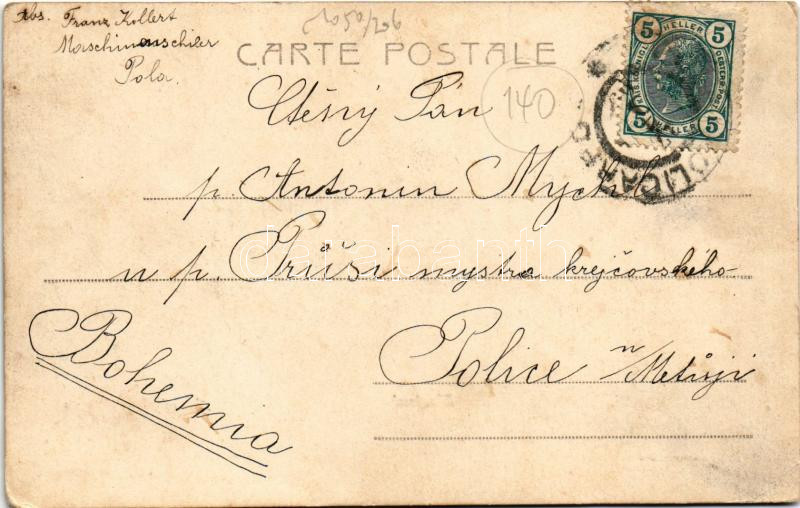 Abs. Franz Kollert
Maschinenschiler
Pola.
1050/206
CARTE POSTALE
140
5 HELLER 5
5 HELLER 5
Ctěný Pán
p. Antonin Mychl
u p. Průši mystra krejčovského
Police n/Metují
Bohemia
darabanth